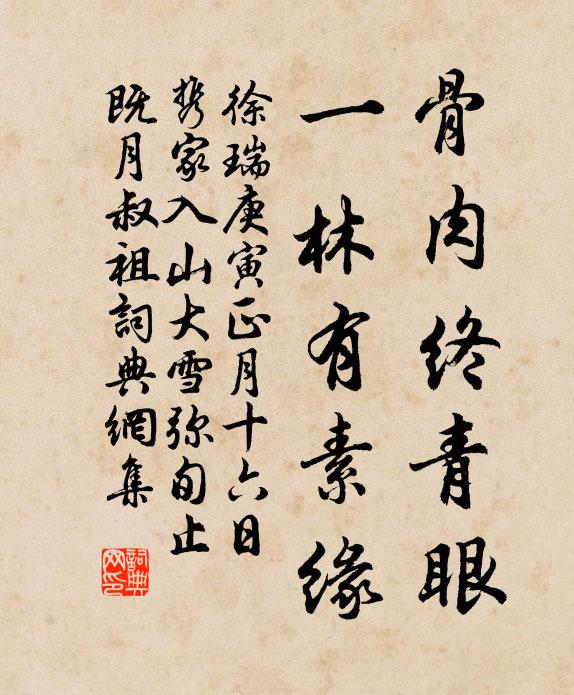 骨肉终青眼
一林有素缘
徐瑞庚寅正月十六日
携家入山大雪弥旬止
既月叔祖詞典網集
詞典网印